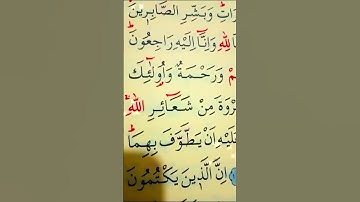 رَاتِ وَبَشِّرِ الصَّابِر۪ينَ
لِلّٰهِ وَاِنَّٓا اِلَيْهِ رَاجِعُونَ
مْ وَرَحْمَةٌ وَاُو۬لٰٓئِكَ
رْوَةَ مِنْ شَعَٓائِرِ اللّٰهِ
لَيْهِ اَنْ يَطَّوَّفَ بِهِمَا
اِنَّ الَّذ۪ينَ يَكْتُمُونَ